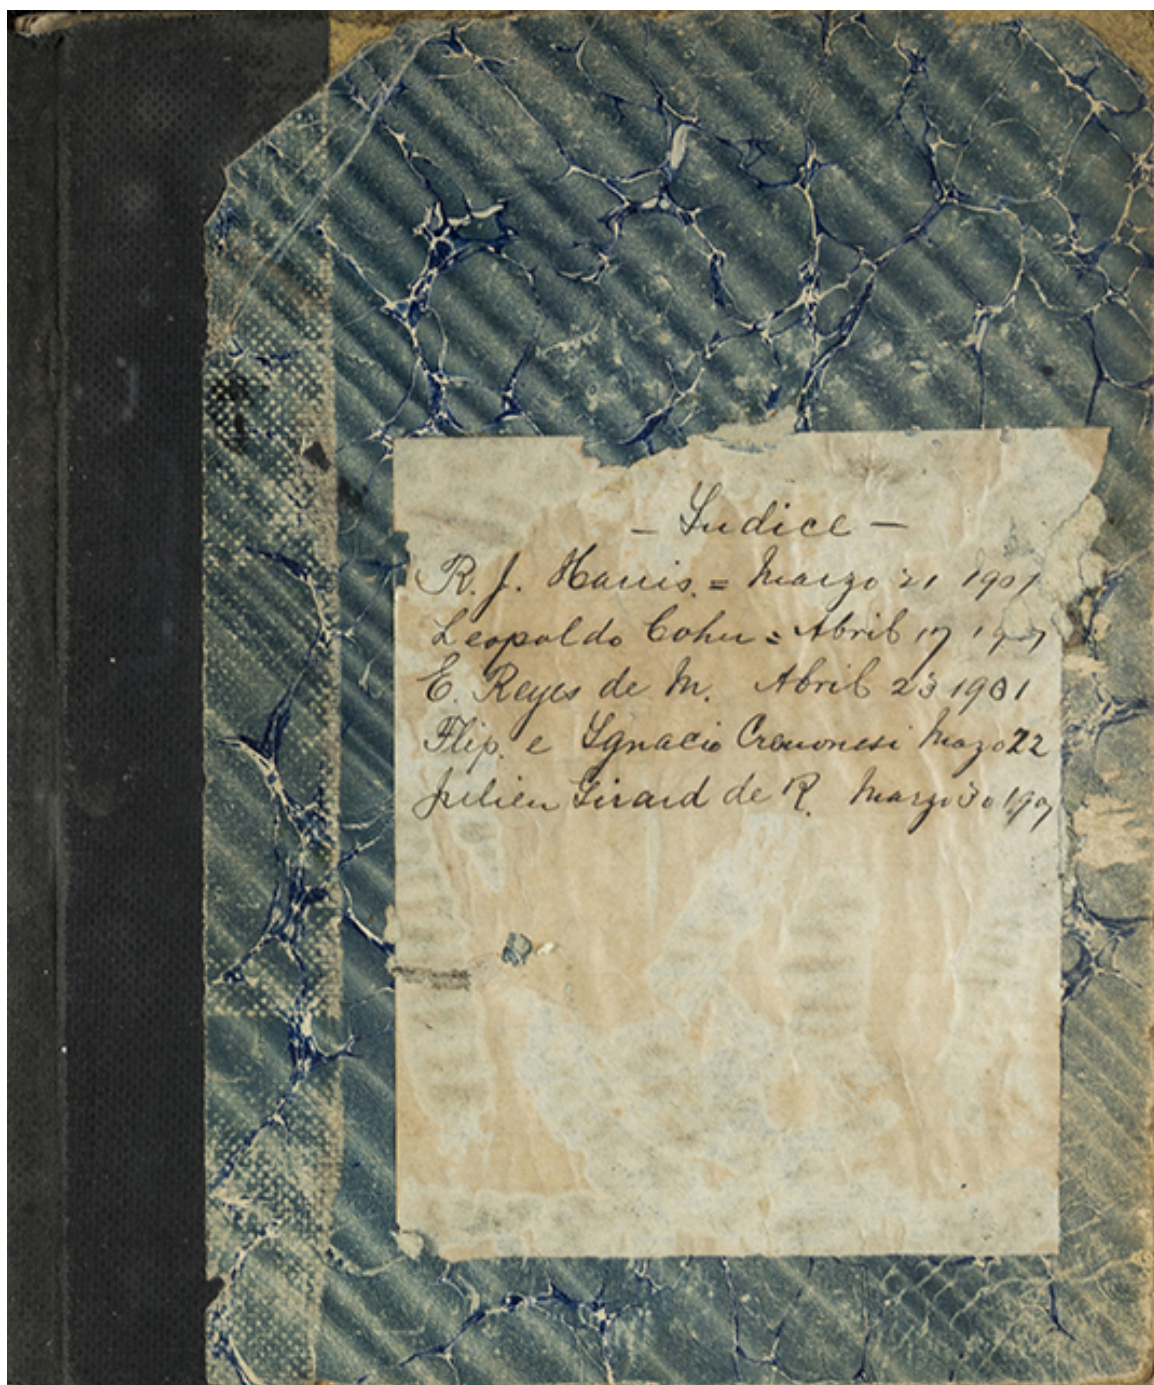 — Indice —
R. J. Harris. = Marzo 21 1901
Leopoldo Cohn = Abril 17 1901
E. Reyes de M. Abril 23 1901
Flip. e Ignacio Cremonesi Mazo 22
Julien Girard de R. Marzo 30 190